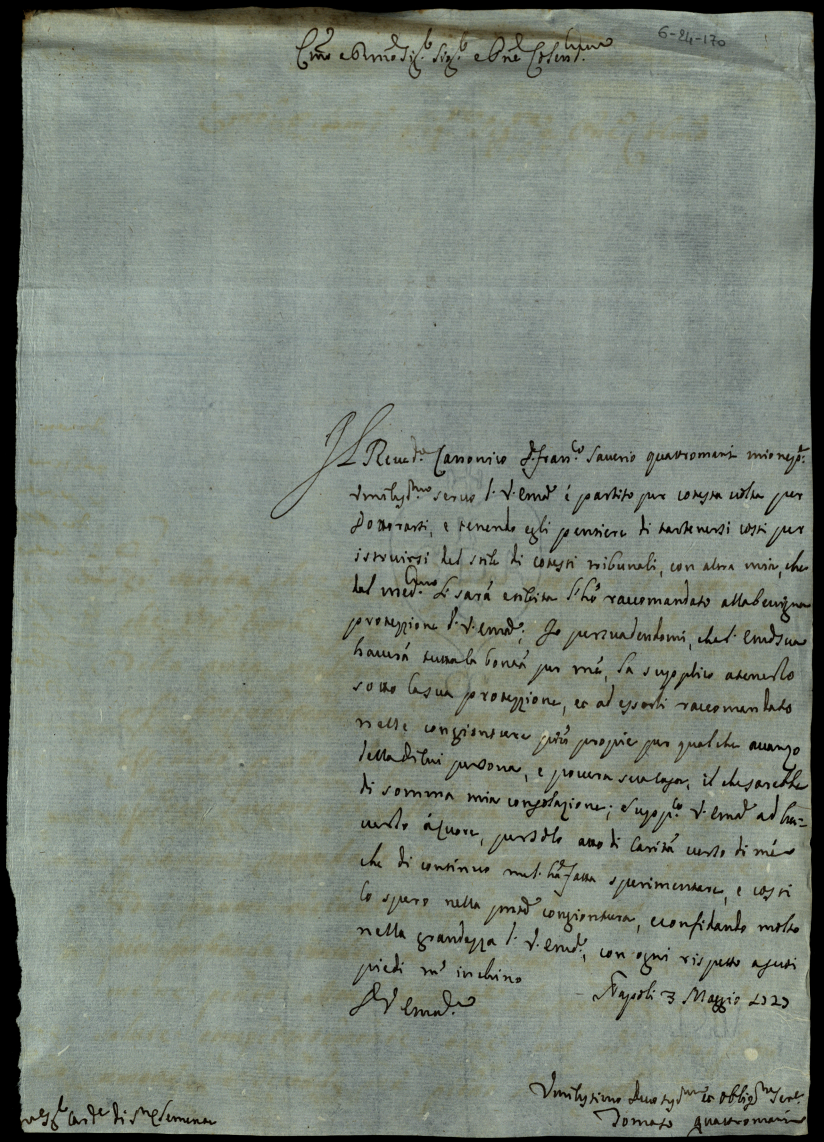 6-24-170
Em̃o e Rmo Sig.r Sig.r e Pñe
Il Revd.o Canonico D. Fran.co Saverio quattromani mio nep.e
umiliss.mo servo di V. Emã è partito per cotesta volta per
Dottorarsi, e tenendo egli pensiere di trattenersi costì per
istruirsi del stile di cotesti tribunali, con altra mia, che
dal med.mo li sarà esibita l'hò raccomandato alla benigna
protezzione di V. Emã; Io persuadendomi, che l'
haverà tutta la bontà per mè, la supplico a tenerlo
sotto la sua protezzione, et ad esserli raccomandato
nelle congionture più proprie per qualche avanzo
della di lui persona, e povera sua casa, il che sarebbe
di somma mia consolazione; supp.co V. Emã ad ha-
verlo à cuore, per solo atto di Carità verso di mè
che di continuo me l'hà fatta sperimentare, e così
lo spero nella congiontura, e confidando molto
nella grandezza di V. Emã, con ogni rispetto a suoi
piedi m' inchino
Di V. Emã Napoli 3 Maggio 1727
Umilissimo Devotiss.mo et obblig.mo Ser.e
quattromani